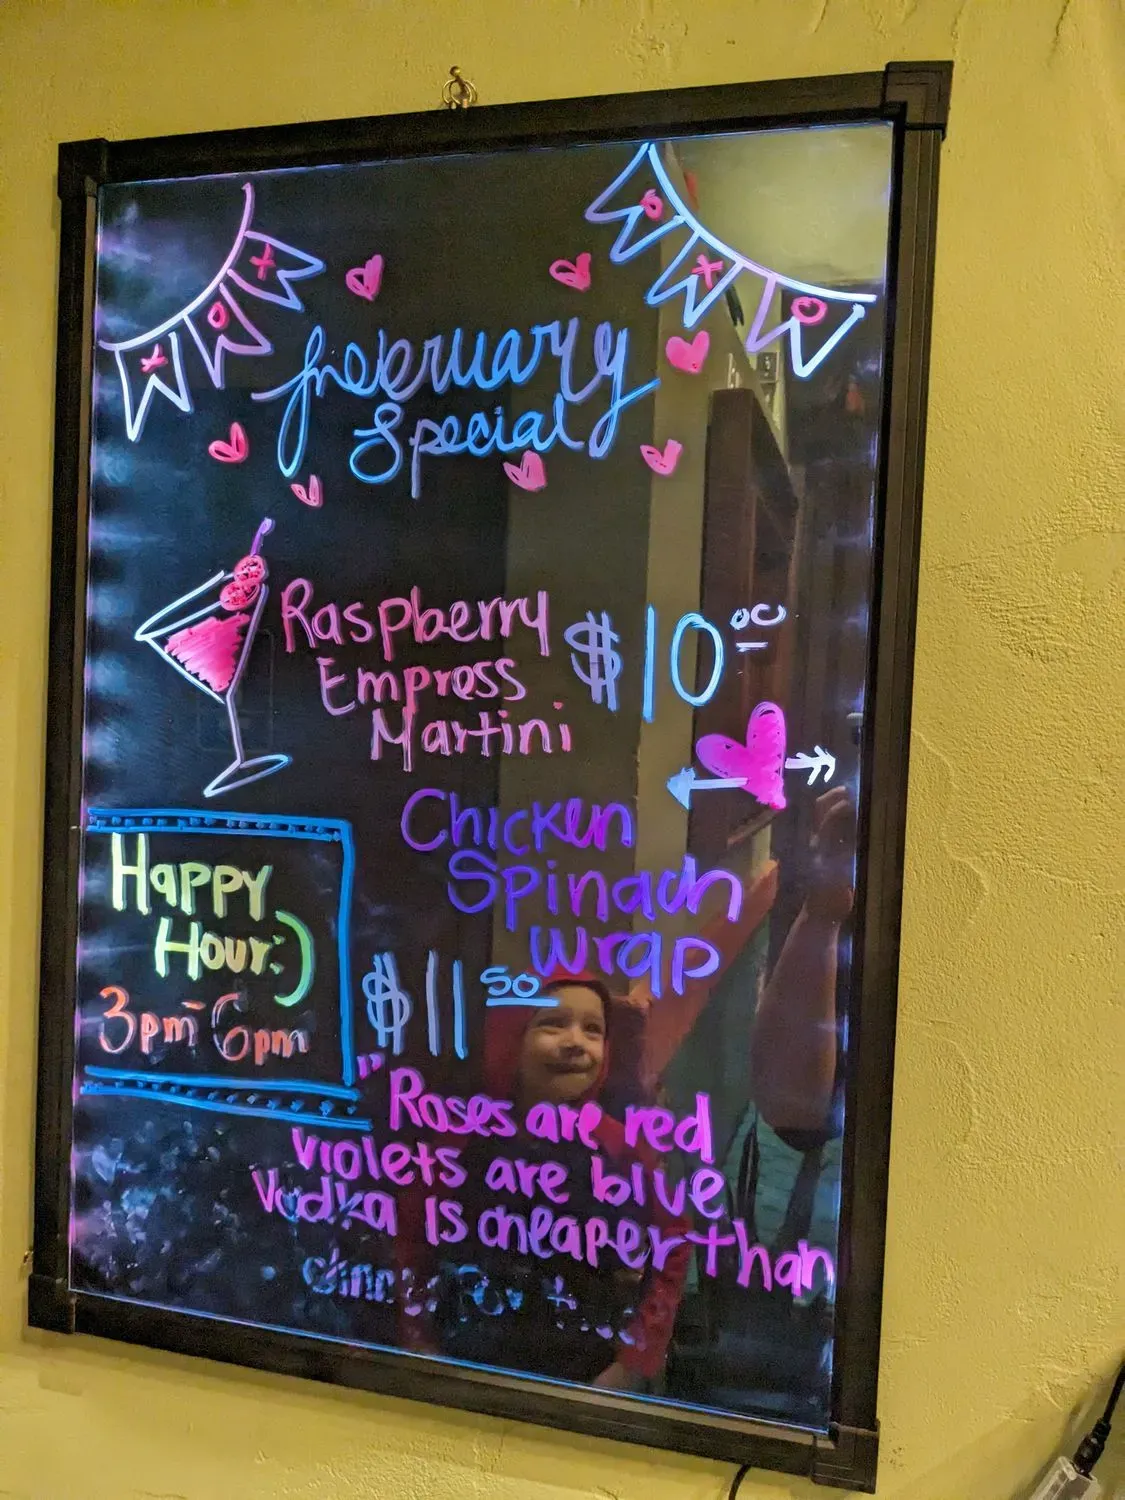 x o x
o x o
February
Special
Raspberry
Empress
Martini
$10.00
Chicken
Spinach
Wrap
$11.50
Happy
Hour:)
3pm-6pm
"Roses are red
violets are blue
Vodka is cheaper than
dinner for